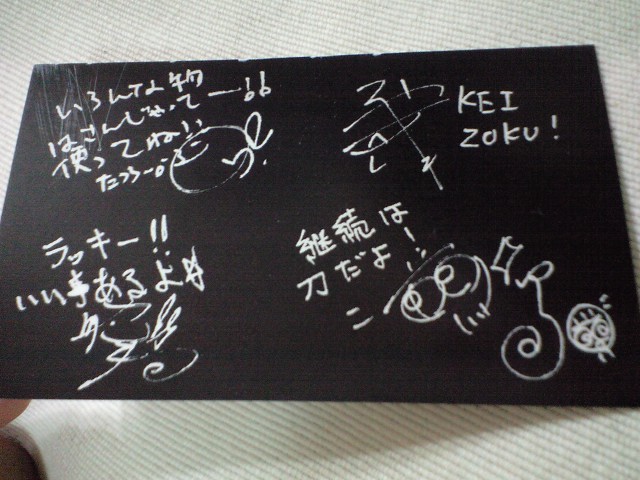 いろんな物
はさんじゃってー!!
使ってねい
たっろー!
KEI
ZOKU!
ラッキー!!
いい事あるよ
継続は
刀だよ!